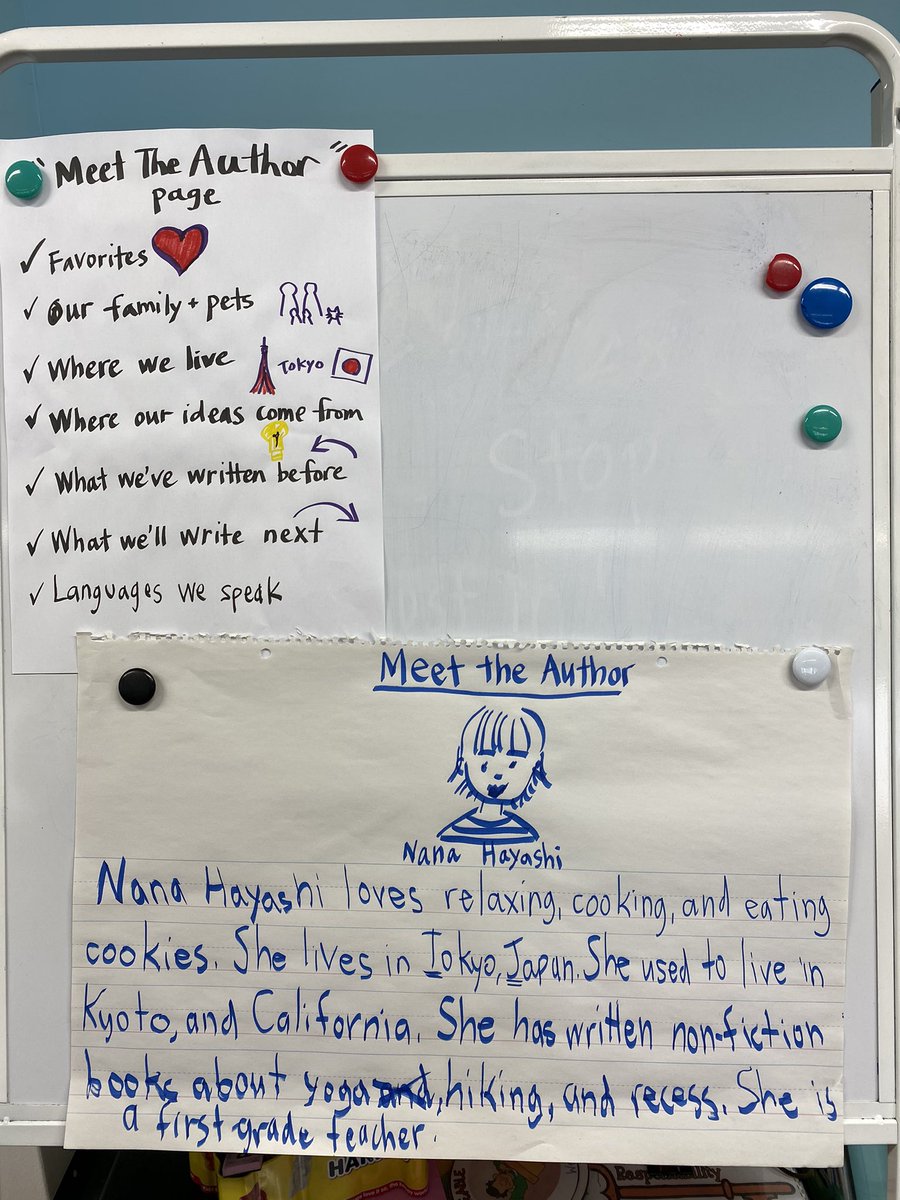 "Meet The Author"
page
✓ Favorites
✓ Our family + pets
✓ Where we live
TOKYO
✓ Where our ideas come from
✓ What we've written before
✓ What we'll write next
✓ Languages we speak
Stop
Meet the Author
Nana Hayashi
Nana Hayashi loves relaxing, cooking, and eating
cookies. She lives in Tokyo, Japan. She used to live in
Kyoto, and California. She has written non-fiction
books about yoga and, hiking, and recess. She is
a first grade teacher.
HAR